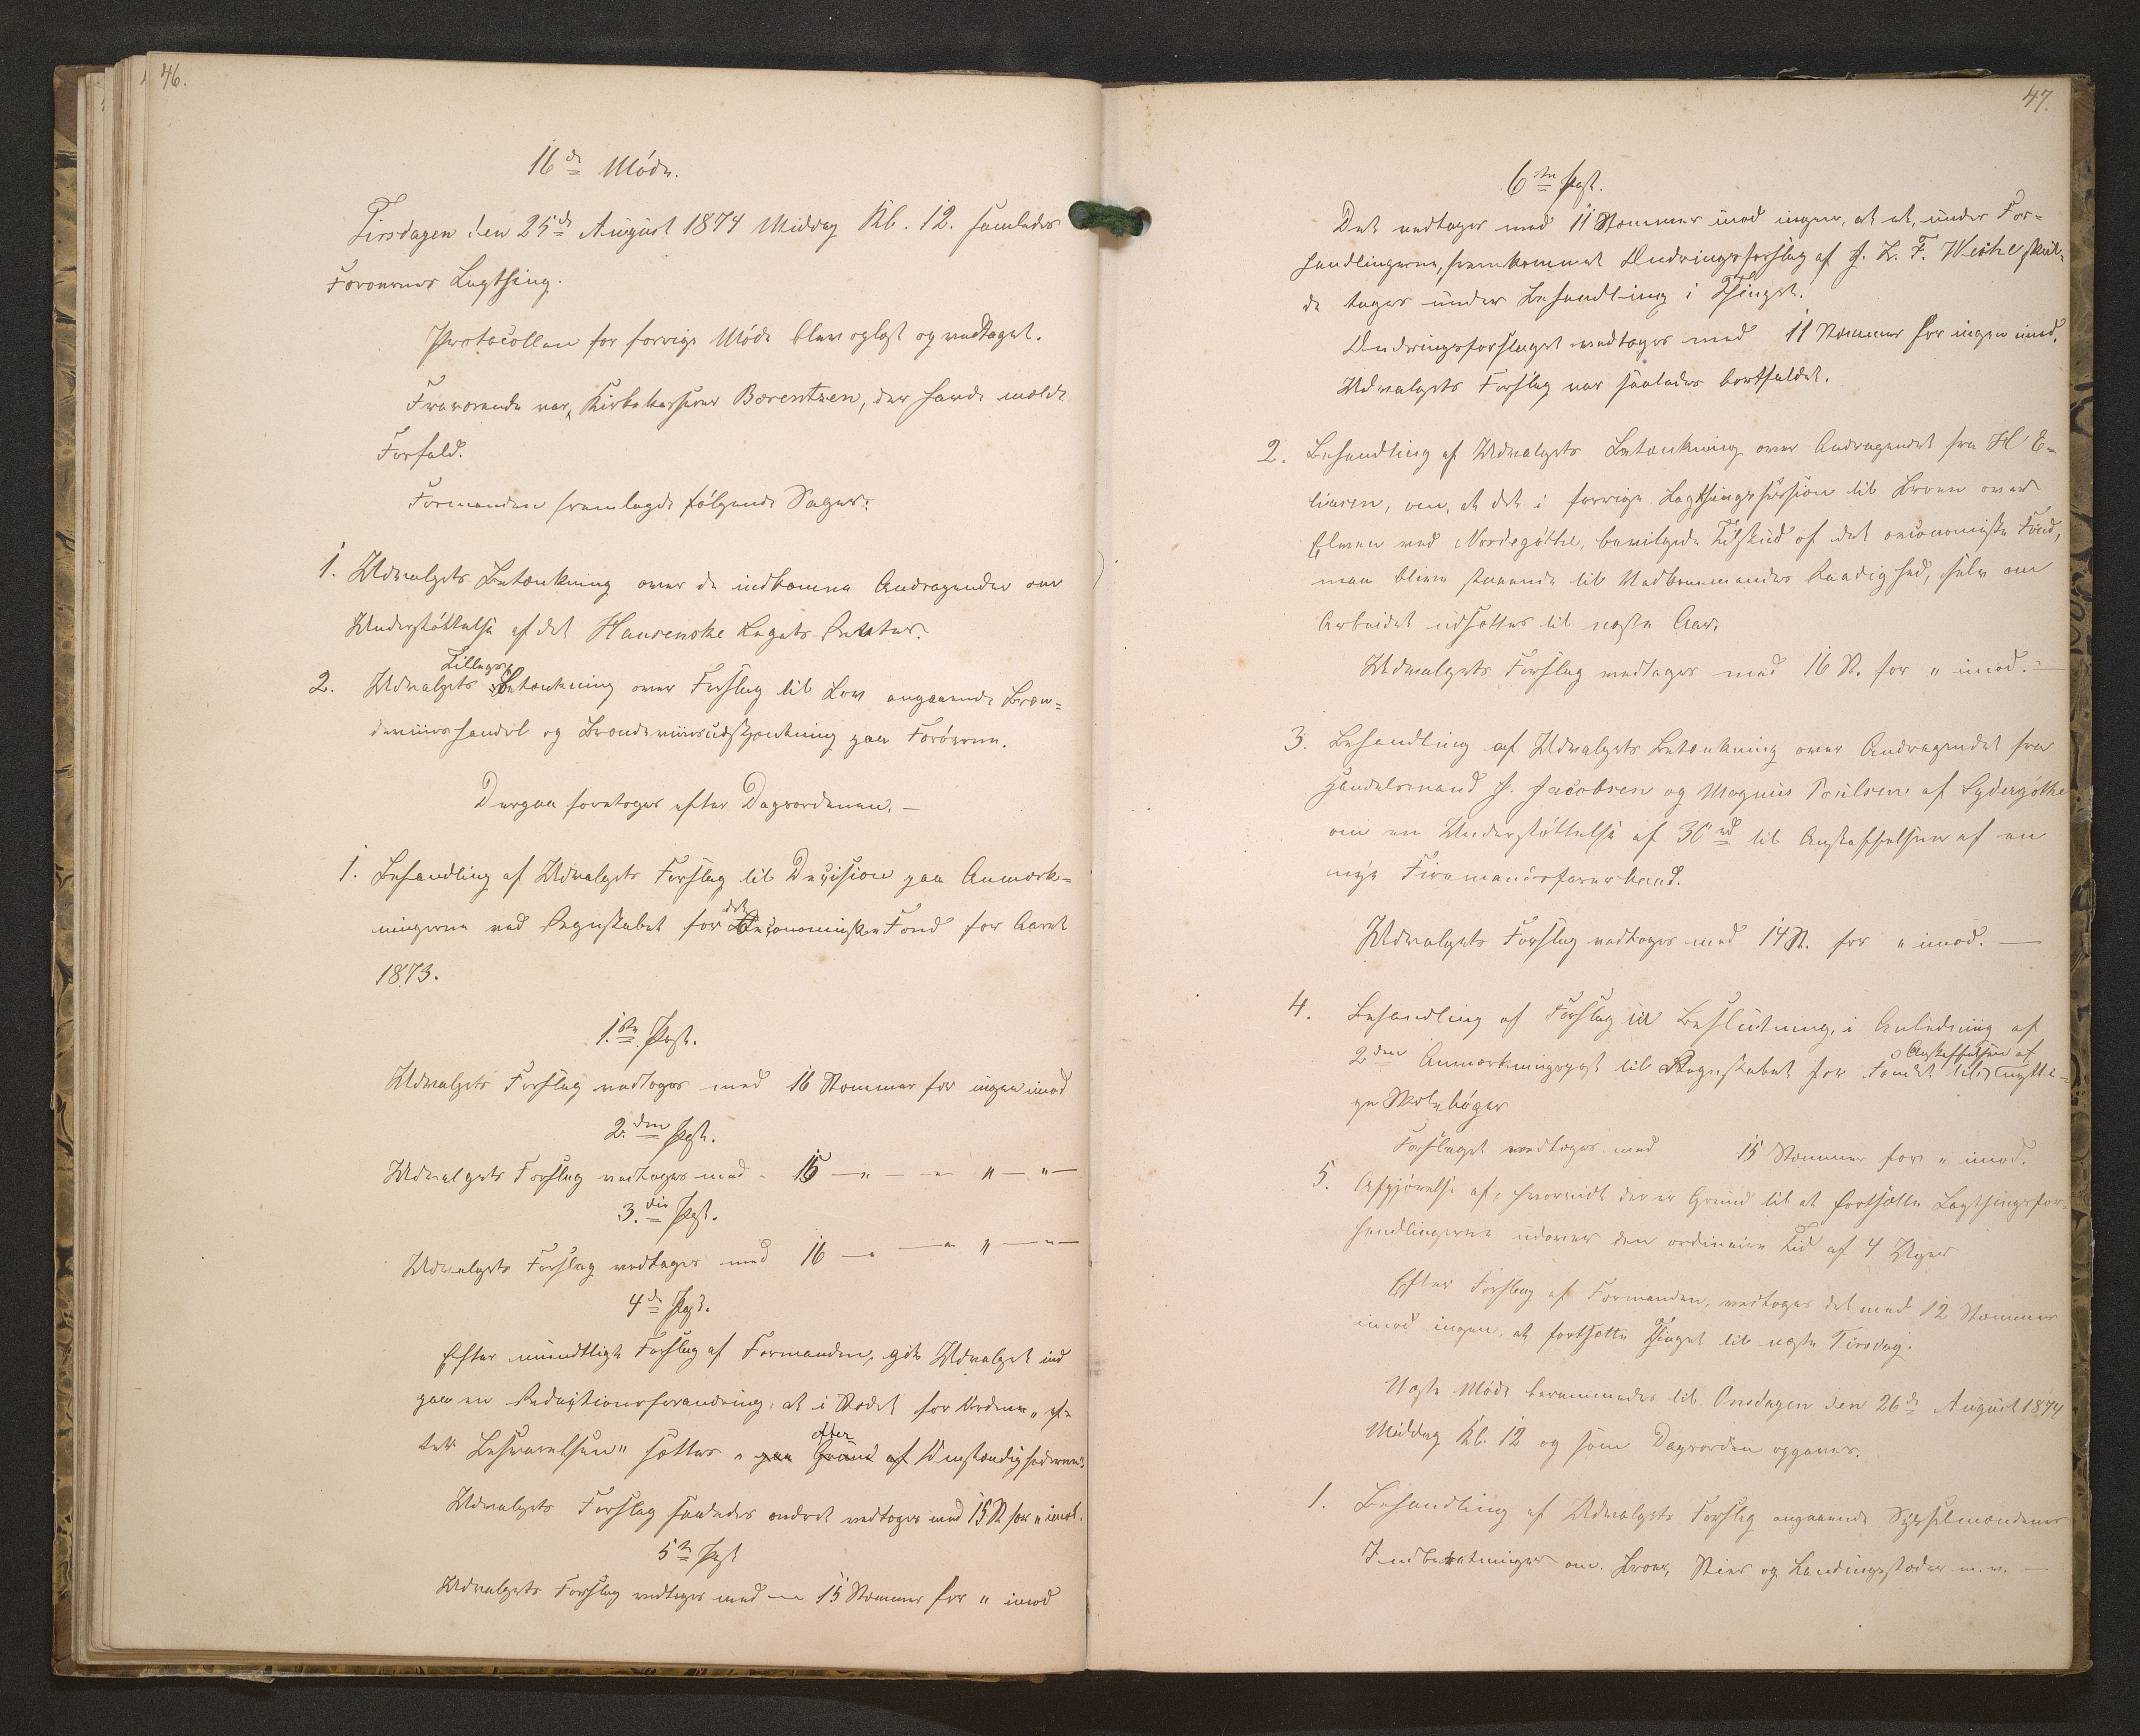 46.
16de Møde.
Tirsdagen den 25de August 1874 Middag Kl. 12. samledes
Færøernes Lagthing.
Protocollen for forrige Møde blev oplæst og vedtaget.
Fraværende var, Kirkekasserer Bærentzen, der havde meldt
Forfald.
Formanden fremlagde følgende Sager:
1. Udvalgets Betænkning over de indkomne Andragender om
Understøttelse af det Hansenske Legats Renter.
Tillægs
2. Udvalgets Betænkning over Forslag til Lov angaaende Bræn-
deviinshandel og Brændeviinsudskjænkning paa Færøerne.
Derpaa foretoges efter Dagsordenen. —
1. Behandling af Udvalgets Forslag til Decision paa Anmærk-
det
ningerne ved Regnskabet for Oeconomiske Fond for Aaret
1873.
1ste Post.
Udvalgets Forslag vedtoges med 16 Stemmer for ingen imod
2den Post.
Udvalgets Forslag vedtoges med - 15 — „ — — „ — „ —
3die Post.
Udvalgets Forslag vedtoges med 16 — „ — „ — „ —
4de Post.
Efter mundtligt Forslag af Formanden, gik Udvalget ind
paa en Redactionsforandring, at i Stedet for Ordene „ ef-
efter
ter Besvarelsen" sættes „ paa Grund af Omstændighederne".
Udvalgets Forslag saaledes ændret vedtoges med 15 St for „ imod.
5te Post
Udvalgets Forslag vedtoges med — 15 Stemmer for „ imod
47.
6ste Post.
Det vedtoges med 11 Stemmer imod ingen, at et, under For-
handlingerne, fremkommet Ændringsforslag af J. L. F. Weihe skul-
de tages under Behandling i Thinget.
Ændringsforslaget vedtoges med 11 Stemmer for ingen imod.
Udvalgets Forslag var saaledes bortfaldet.
2. Behandling af Udvalgets Betænkning over Andragendet fra H E-
liasen, om, at det i forrige Lagthingssession til Broen over
Elven ved Nordregøthe, bevilgede Tilskud af det oeconomiske Fond,
maa blive staaende til Vedkommendes Raadighed, selv om
Arbeidet udsættes til næste Aar.
Udvalgets Forslag vedtoges med 16 St. for „ imod. —
3. Behandling af Udvalgets Betænkning over Andragendet fra
Handelsmand J. Jacobsen og Magnus Poulsen af Sydergøthe
om en Understøttelse af 30 rd til Anskaffelsen af en
nye Firemandsfarerbaad.
Udvalgets Forslag vedtoges med 14 St. for „ imod. —
4. Behandling af Forslag til Beslutning, i Anledning af
Anskaffelsen af
2den Anmærkningspost til Regnskabet for Fondet til nytti-
ge Skolebøger
Forslaget vedtoges med 15 Stemmer for „ imod.
5. Afgjørelse af, hvorvidt der er Grund til at fortsætte Lagthingsfor-
handlingerne udover den ordinaire Tid af 4 Uger
Efter Forslag af Formanden, vedtoges det med 12 Stemmer
imod ingen, at fortsætte Thinget til næste Tirsdag.
Næste Møde berammedes til Onsdagen den 26de August 1874
Middag Kl. 12 og som Dagsorden opgaves.
1. Behandling af Udvalgets Forslag angaaende Sysselmændenes
Indberetninger om Broer, Stier og Landingsstæder m. v. —